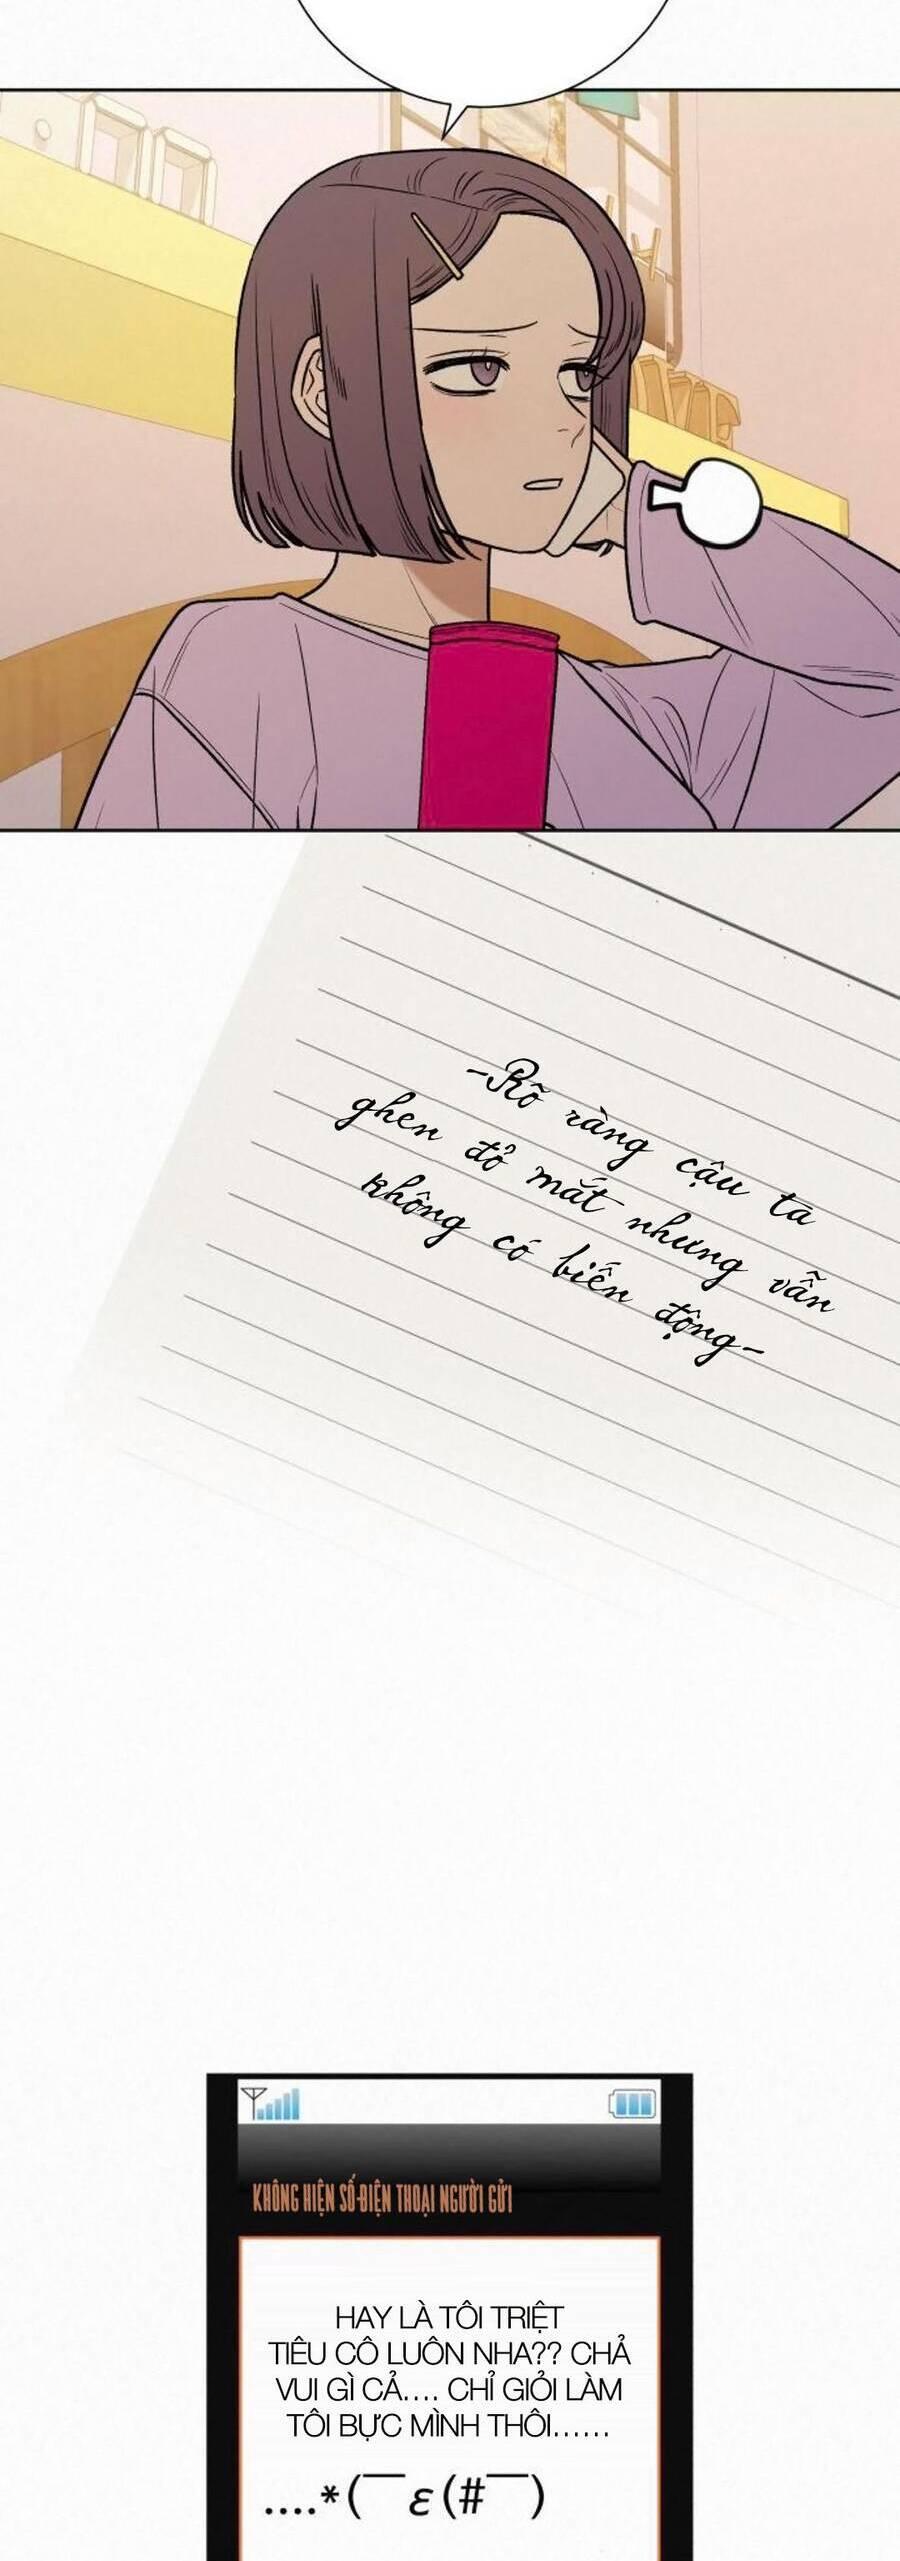 -Rõ ràng cậu ta
ghen đỏ mắt nhưng vẫn
không có biến động-
KHÔNG HIỆN SỐ ĐIỆN THOẠI NGƯỜI GỬI
HAY LÀ TÔI TRIỆT
TIÊU CÔ LUÔN NHA?? CHẢ
VUI GÌ CẢ.... CHỈ GIỎI LÀM
TÔI BỰC MÌNH THÔI......
....*(￣ε(#￣)